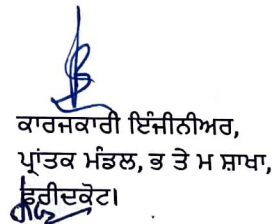 ਕਾਰਜਕਾਰੀ ਇੰਜੀਨੀਅਰ,
ਪ੍ਰਾਂਤਕ ਮੰਡਲ, ਭ ਤੇ ਮ ਸ਼ਾਖਾ,
ਫ਼ਰੀਦਕੋਟ।